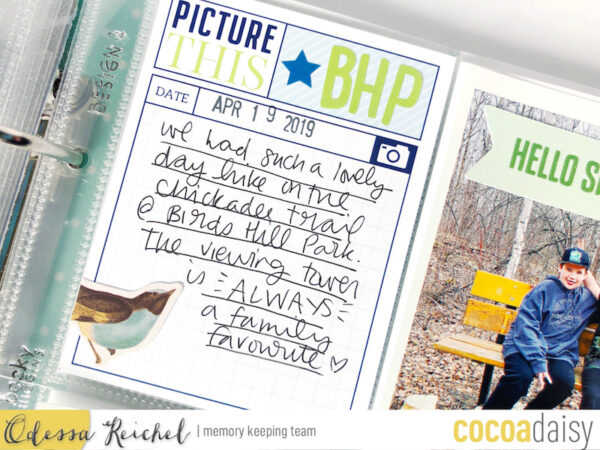 PICTURE
THIS
BHP
DATE
APR 19 2019
we had such a lovely
day hike on the
chickadee trail
@ Birds Hill Park.
The viewing tower
is ALWAYS
a family
favourite ♡
HELLO S
DESIGN
becky
Odessa Reichel | memory keeping team
cocoadaisy